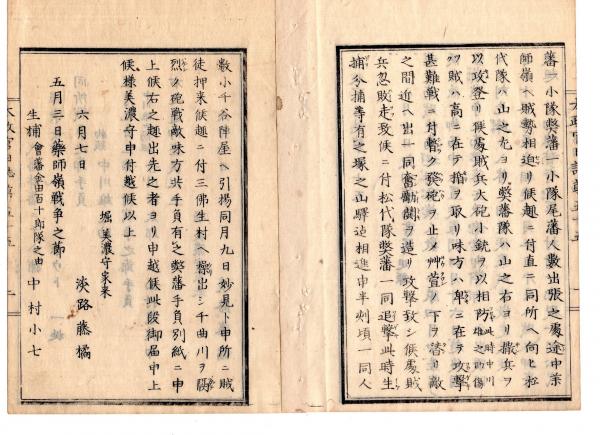 藩一小隊弊藩一小隊尾藩人數出張之處途中茶
師嶺ヘ賊勢相迫リ候趣ニ付直ニ同所ヘ向ヒ松
代隊ハ山之左ヨリ弊藩隊ハ山之右ヨリ撒兵ヲ
以攻登リ候處賊兵大砲小銃ヲ以相防此時中川雄之助傷
賊ハ高ニ在テ指ヲ取リ味方ハ卑ニ在ヲ攻撃
甚難戰ニ付暫ク發砲ヲ止メ艸萱ノ下ヲ潜リ敵
之間近ヘ出一同奮鬬ヲ造リ攻撃致シ候處賊
兵忽敗走致候ニ付松代隊弊藩一同追撃此時生
捕分捕等有之塚之山驛迠相進申半刻頃一同人
數小千谷陣屋ヘ引揚同月九日妙見ト申所ニ賊
徒押来候趣ニ付三佛生村ヘ操出シ千曲川ヲ隔
烈ク砲戰敵味方共手負有之弊藩手負別紙ニ申
上候右之趣出先之者ヨリ申越候此段御届申上
候様美濃守申付越候以上
堀美濃守家来
六月七日 淡路藤橘
五月三日藥師嶺戰争之節
生捕會藩金田百十郎隊之由 中村小七